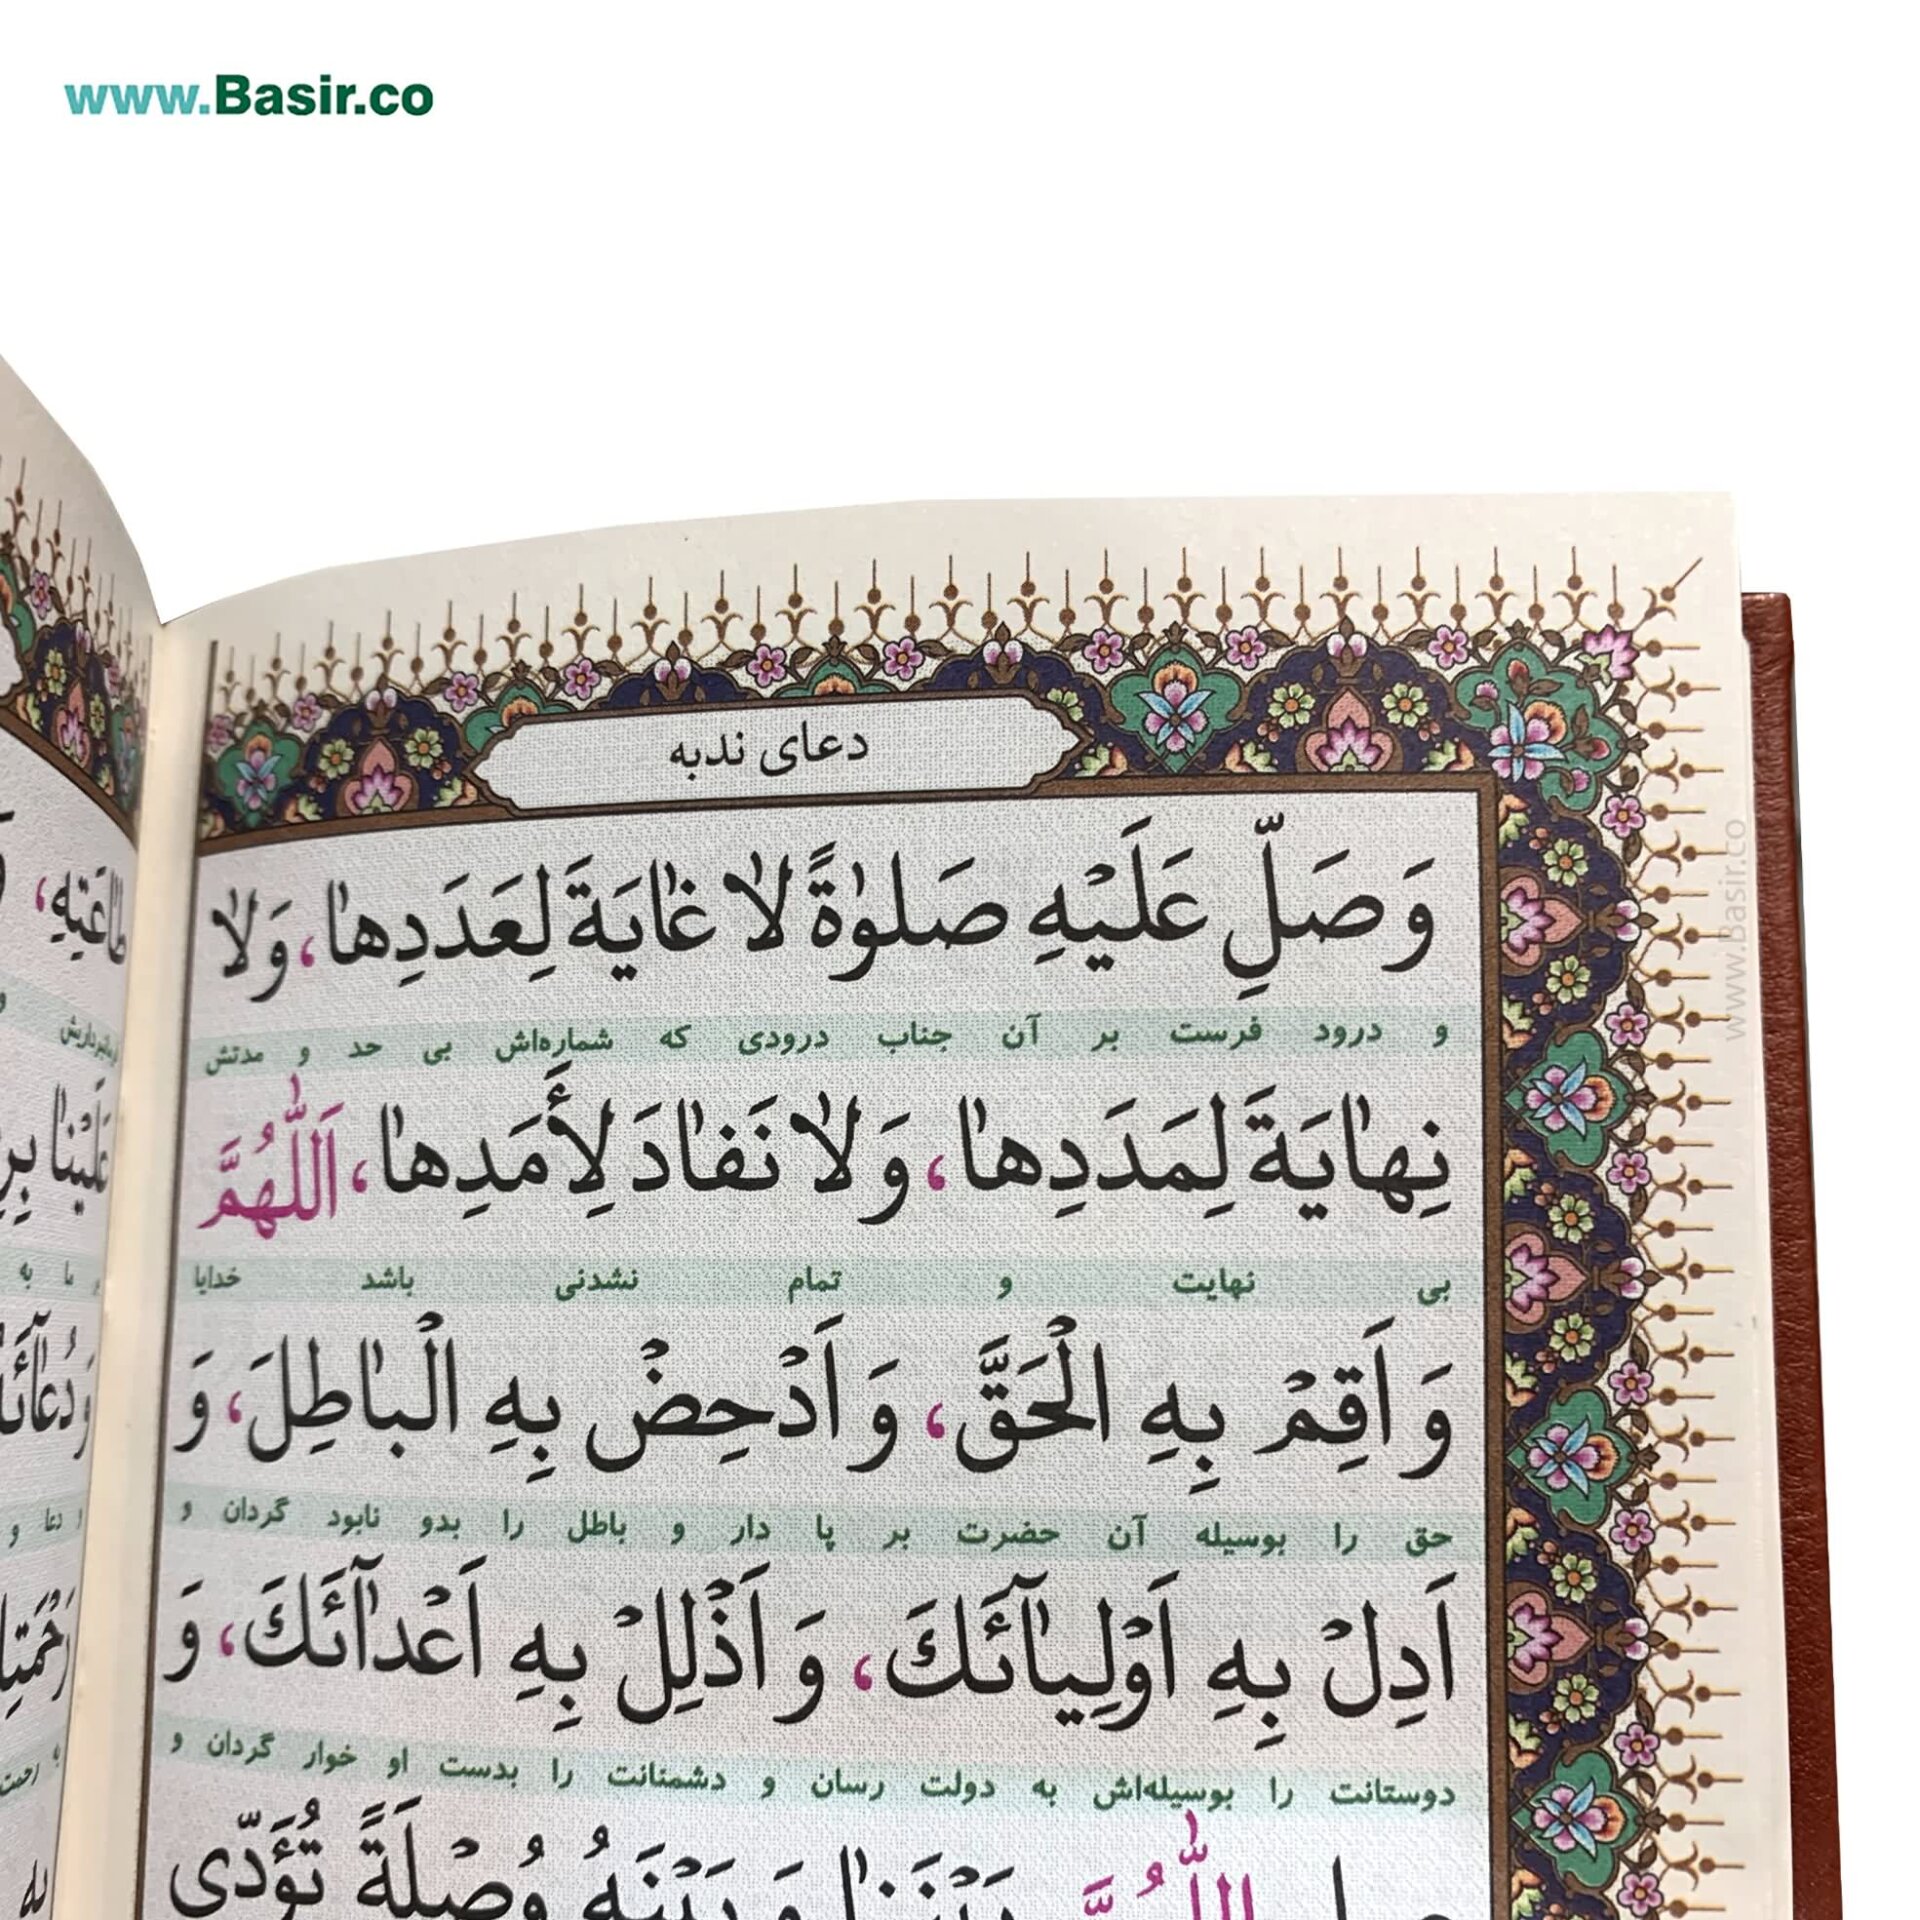 www.Basir.co
دعای ندبه
وَ صَلِّ عَلَيْهِ صَلوٰةً لاٰ غٰايَةَ لِعَدَدِهٰا، وَلاٰ
و درود فرست بر آن جناب درودی که شماره‌اش بی حد و مدتش
نِهٰايَةَ لِمَدَدِهٰا، وَلاٰ نَفٰادَ لِأَمَدِهٰا، اَللّٰهُمَّ
بی نهایت و تمام نشدنی باشد خدایا
وَ اَقِمْ بِهِ الْحَقَّ، وَ اَدْحِضْ بِهِ الْبٰاطِلَ، وَ
حق را بوسیله آن حضرت بر پا دار و باطل را بدو نابود گردان و
اَدِلْ بِهِ اَوْلِيٰآئَكَ، وَ اَذْلِلْ بِهِ اَعْدٰآئَكَ، وَ
دوستانت را بوسیله‌اش به دولت رسان و دشمنانت را بدست او خوار گردان و
اللّٰهُمَّ بَيْنَنٰا وَ بَيْنَهُ وُصْلَةً تُؤَدّى
طٰاعَتِهِ،
فرمانبرداریش و
عَلَيْنٰا
ما به
دعا و
رحمت
www.Basir.co